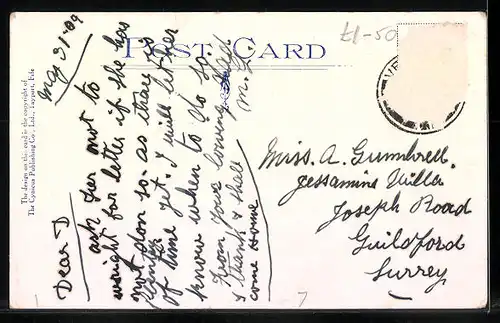 POST CARD
£1-50
The design on the card is the copyright of
The Cynicus Publishing Co., Ltd., Tayport, Fife
May 31 · 09
Dear D
ask her not to
wright for letter if she has
not don so. as there is
plenty
of time yet. I will let her
know when to do so
from your loving
M. G.
I think I shall
come home
Miss. A. Gumbrell.
Jessamine Villa
Joseph Road
Guildford
Surrey